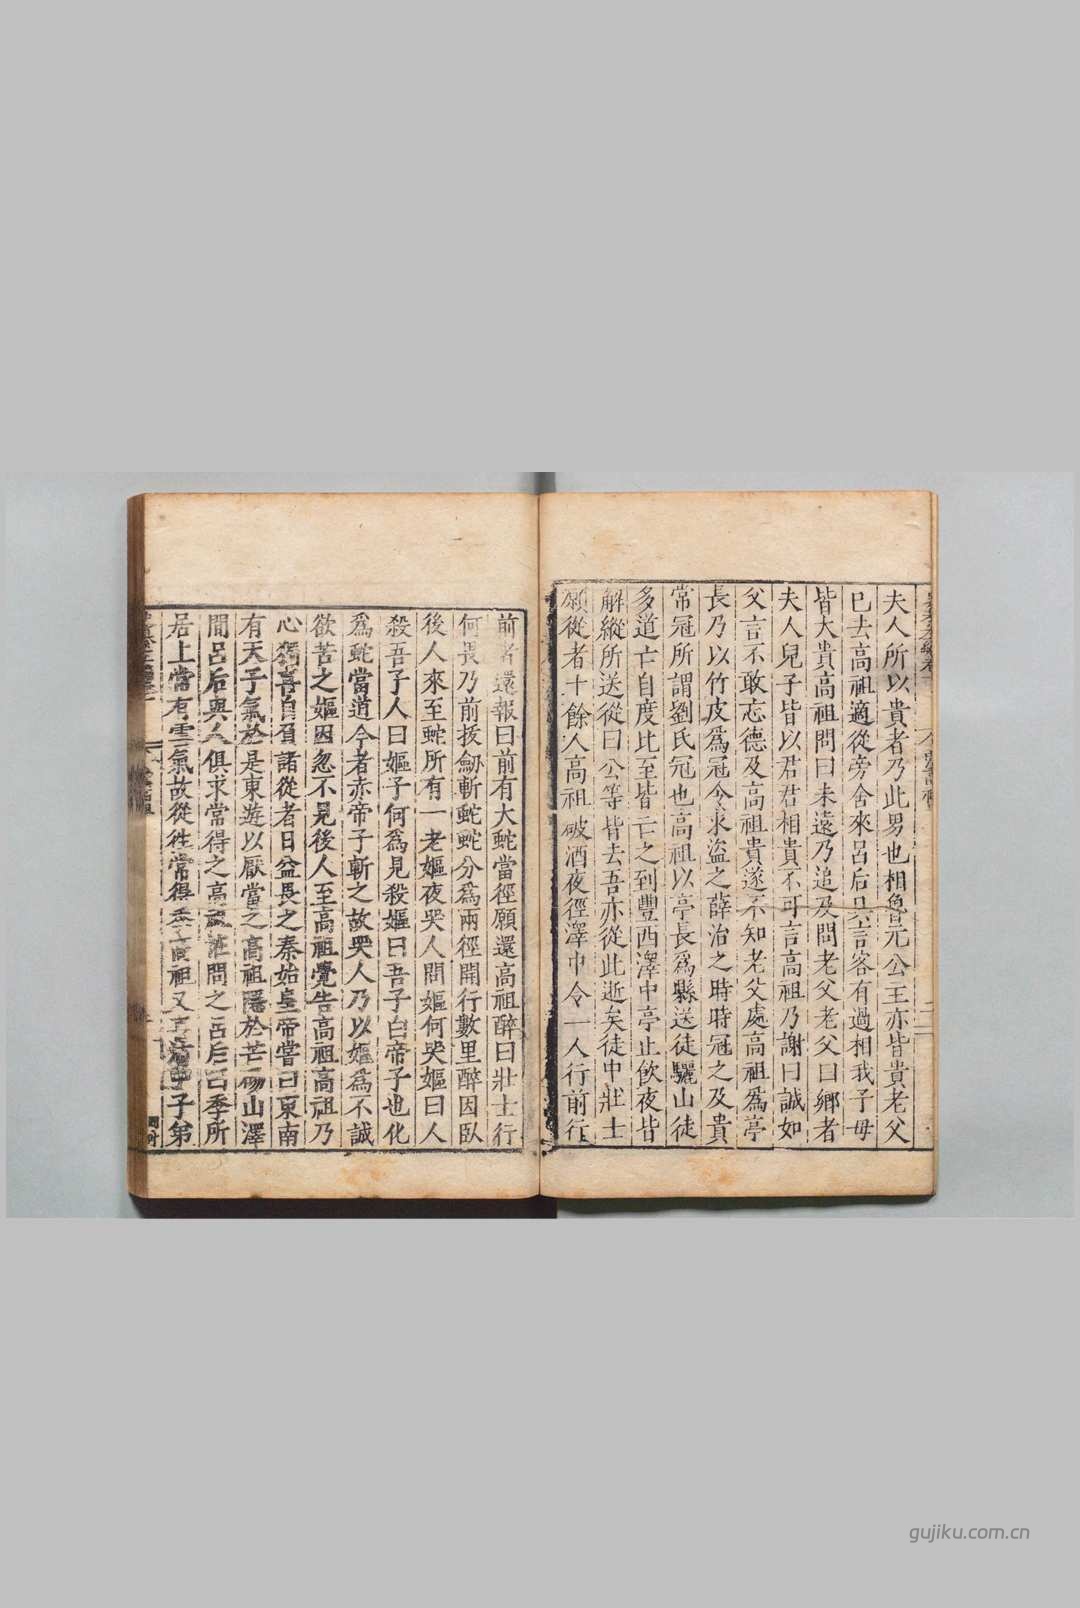 夫人所以貴者乃此男也相魯元公主亦皆貴老父
已去高祖適從旁舍來呂后具言客有過相我子母
皆大貴高祖問曰未遠乃追及問老父老父曰鄉者
夫人兒子皆以君君相貴不可言高祖乃謝曰誠如
父言不敢忘德及高祖貴遂不知老父處高祖爲亭
長乃以竹皮爲冠令求盗之薛治之時時冠之及貴
常冠所謂劉氏冠也高祖以亭長爲縣送徒驪山徒
多道亡自度比至皆亡之到豐西澤中亭止飲夜皆
解縱所送徒曰公等皆去吾亦從此逝矣徒中壯士
願從者十餘人高祖被酒夜徑澤中令一人行前行
前者還報曰前有大蛇當徑願還高祖醉曰壯士行
何畏乃前拔劒斬蛇蛇分爲兩徑開行數里醉因臥
後人來至蛇所有一老嫗夜哭人問嫗何哭嫗曰人
殺吾子人曰嫗子何爲見殺嫗曰吾子白帝子也化
爲蛇當道今者赤帝子斬之故哭人乃以嫗爲不誠
欲苦之嫗因忽不見後人至高祖覺告高祖高祖乃
心獨喜自負諸從者日益畏之秦始皇帝嘗曰東南
有天子氣於是東遊以厭當之高祖隱於芒碭山澤
間呂后與人俱求常得之高祖怪問之呂后曰季所
居上常有雲氣故從往常得季高祖又喜沛中子弟
gujiku.com.cn